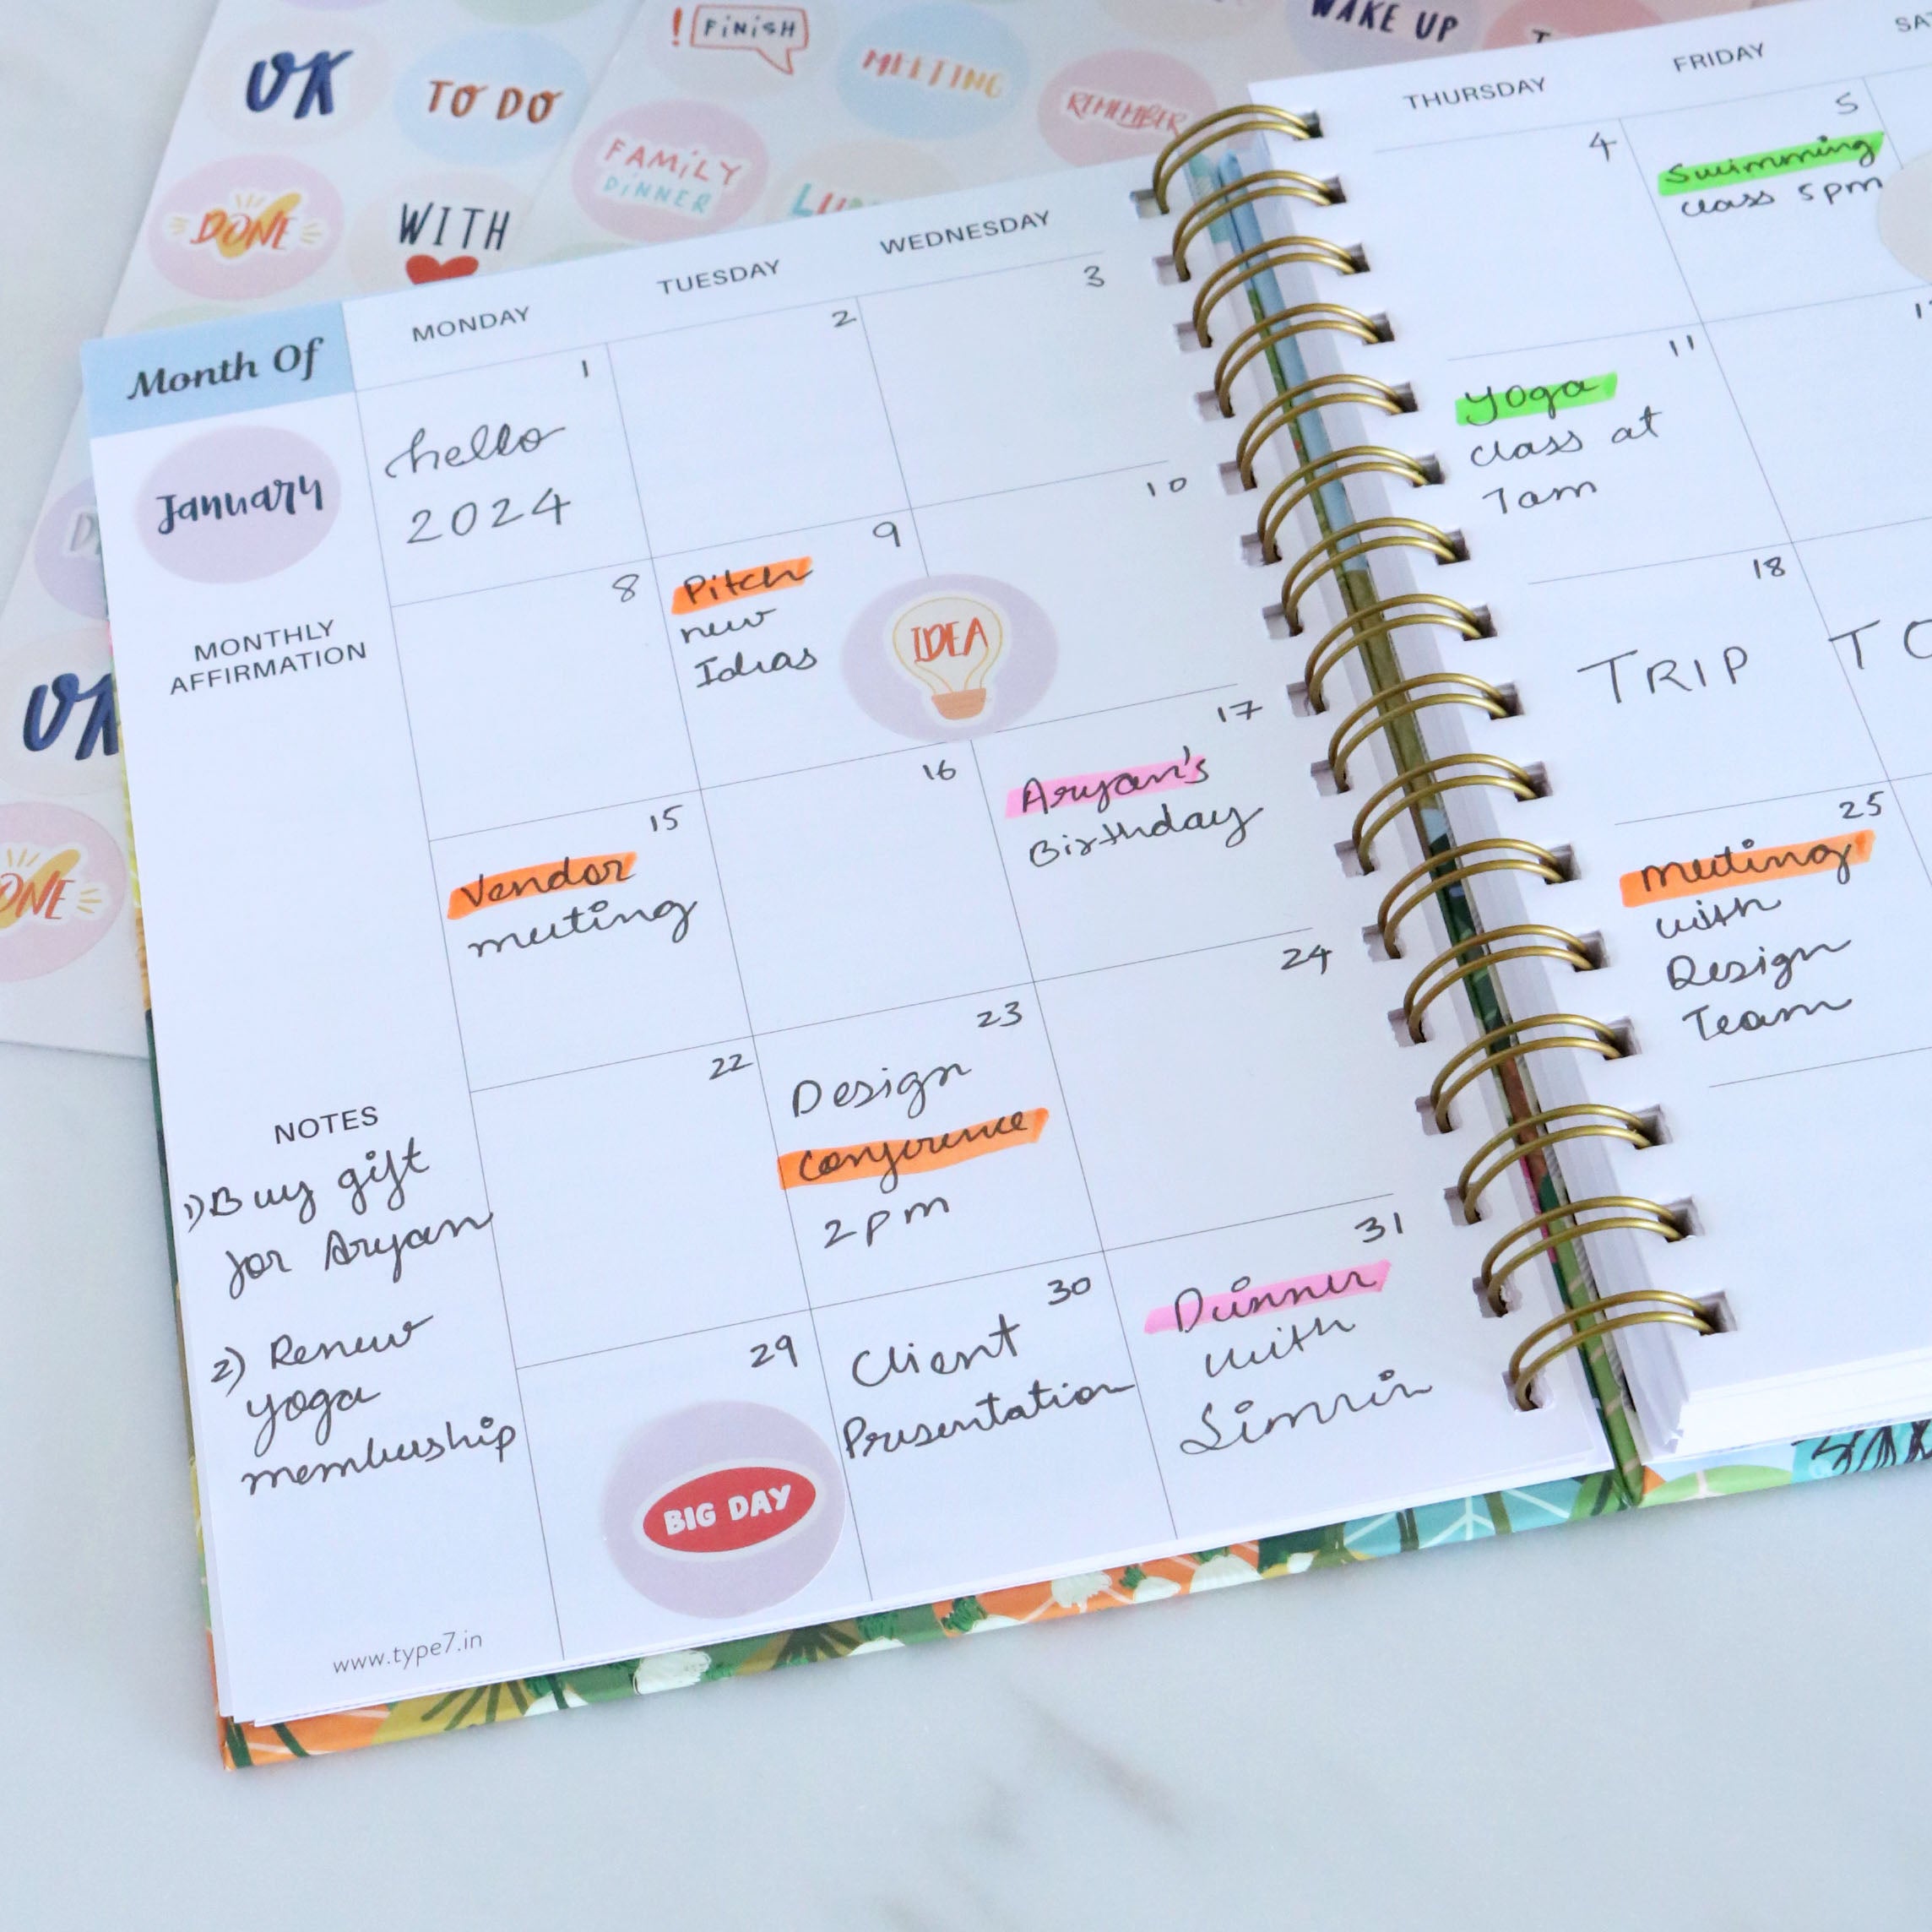 OK
TO DO
! FINISH
MEETING
REMEMBER
WAKE UP
DONE
WITH
FAMILY
DINNER
OK
ONE
Month Of
January
MONTHLY
AFFIRMATION
NOTES
1) Buy gift
for Aryan
2) Renew
yoga
membership
www.type7.in
MONDAY
TUESDAY
WEDNESDAY
THURSDAY
FRIDAY
1
hello
2024
2
3
4
5
Swimming
class 5pm
8
9
Pitch
new
Ideas
IDEA
10
11
Yoga
class at
7am
15
Vendor
meeting
16
17
Aryan's
Birthday
18
TRIP TO
22
23
Design
Conference
2pm
24
25
meeting
with
Design
Team
29
BIG DAY
30
Client
Presentation
31
Dinner
with
Simrin